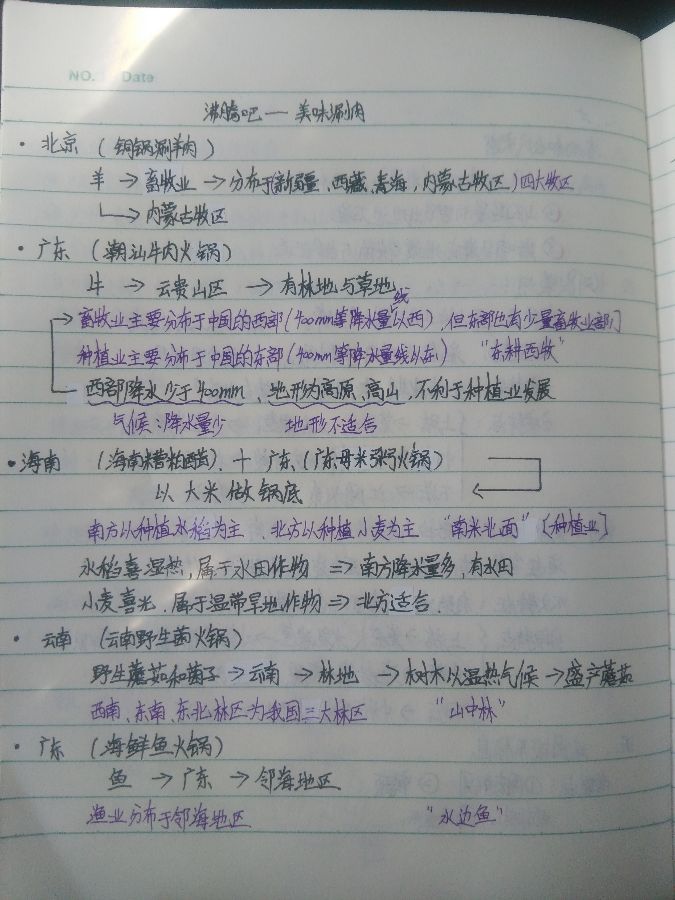 NO. Date
沸腾吧——美味涮肉
· 北京 (铜锅涮羊肉)
羊 → 畜牧业 → 分布于(新疆、西藏、青海,内蒙古牧区) 四大牧区
↳ 内蒙古牧区
· 广东 (潮汕牛肉火锅)
牛 → 云贵山区 → 有林地与草地
畜牧业主要分布于中国的西部(400mm等降水量线以西),但东部也有少量畜牧业部门
种植业主要分布于中国的东部(400mm等降水量线以东) “东耕西牧”
西部降水少于400mm、地形为高原、高山,不利于种植业发展
气候:降水量少 地形不适合
· 海南 (海南糟粕醋) + 广东 (广东母米粥火锅)
以大米做锅底
南方以种植水稻为主、北方以种植小麦为主 “南米北面” [种植业]
水稻喜湿热,属于水田作物 => 南方降水量多,有水田
小麦喜光、属于温带旱地作物 => 北方适合
· 云南 (云南野生菌火锅)
野生蘑菇和菌子 → 云南 → 林地 → 树木以湿热气候 → 盛产蘑菇
西南、东南、东北林区为我国三大林区 “山中林”
· 广东 (海鲜鱼火锅)
鱼 → 广东 → 邻海地区
渔业分布于邻海地区 “水边鱼”